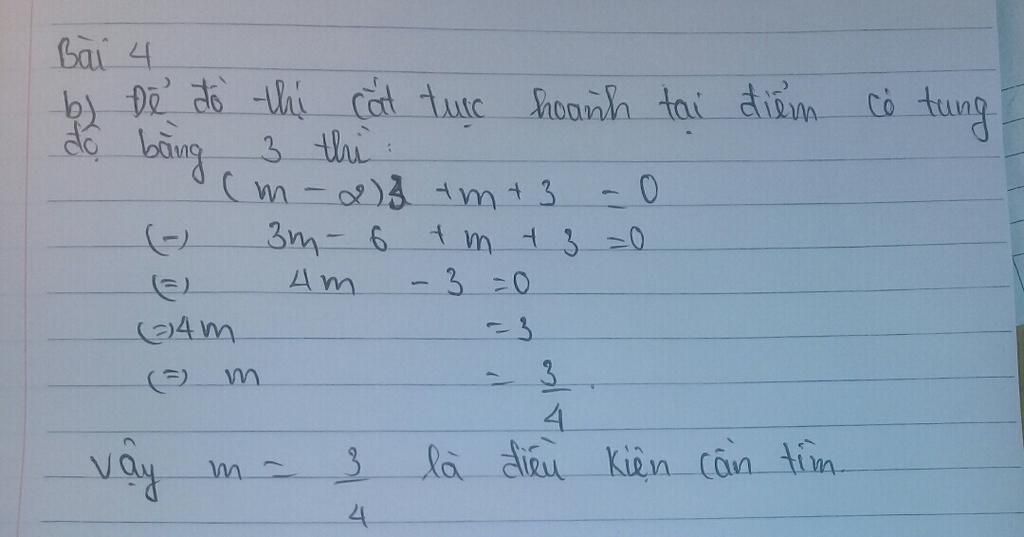 Bài 4
b) Để đồ thị cắt tục hoành tại điểm có tung
độ bằng 3 thì:
(m - 2)3 + m + 3 = 0
(=) 3m - 6 + m + 3 = 0
(=) 4m - 3 = 0
(=) 4m = 3
(=) m = 3/4.
Vậy m = 3/4 là điều kiện cần tìm.